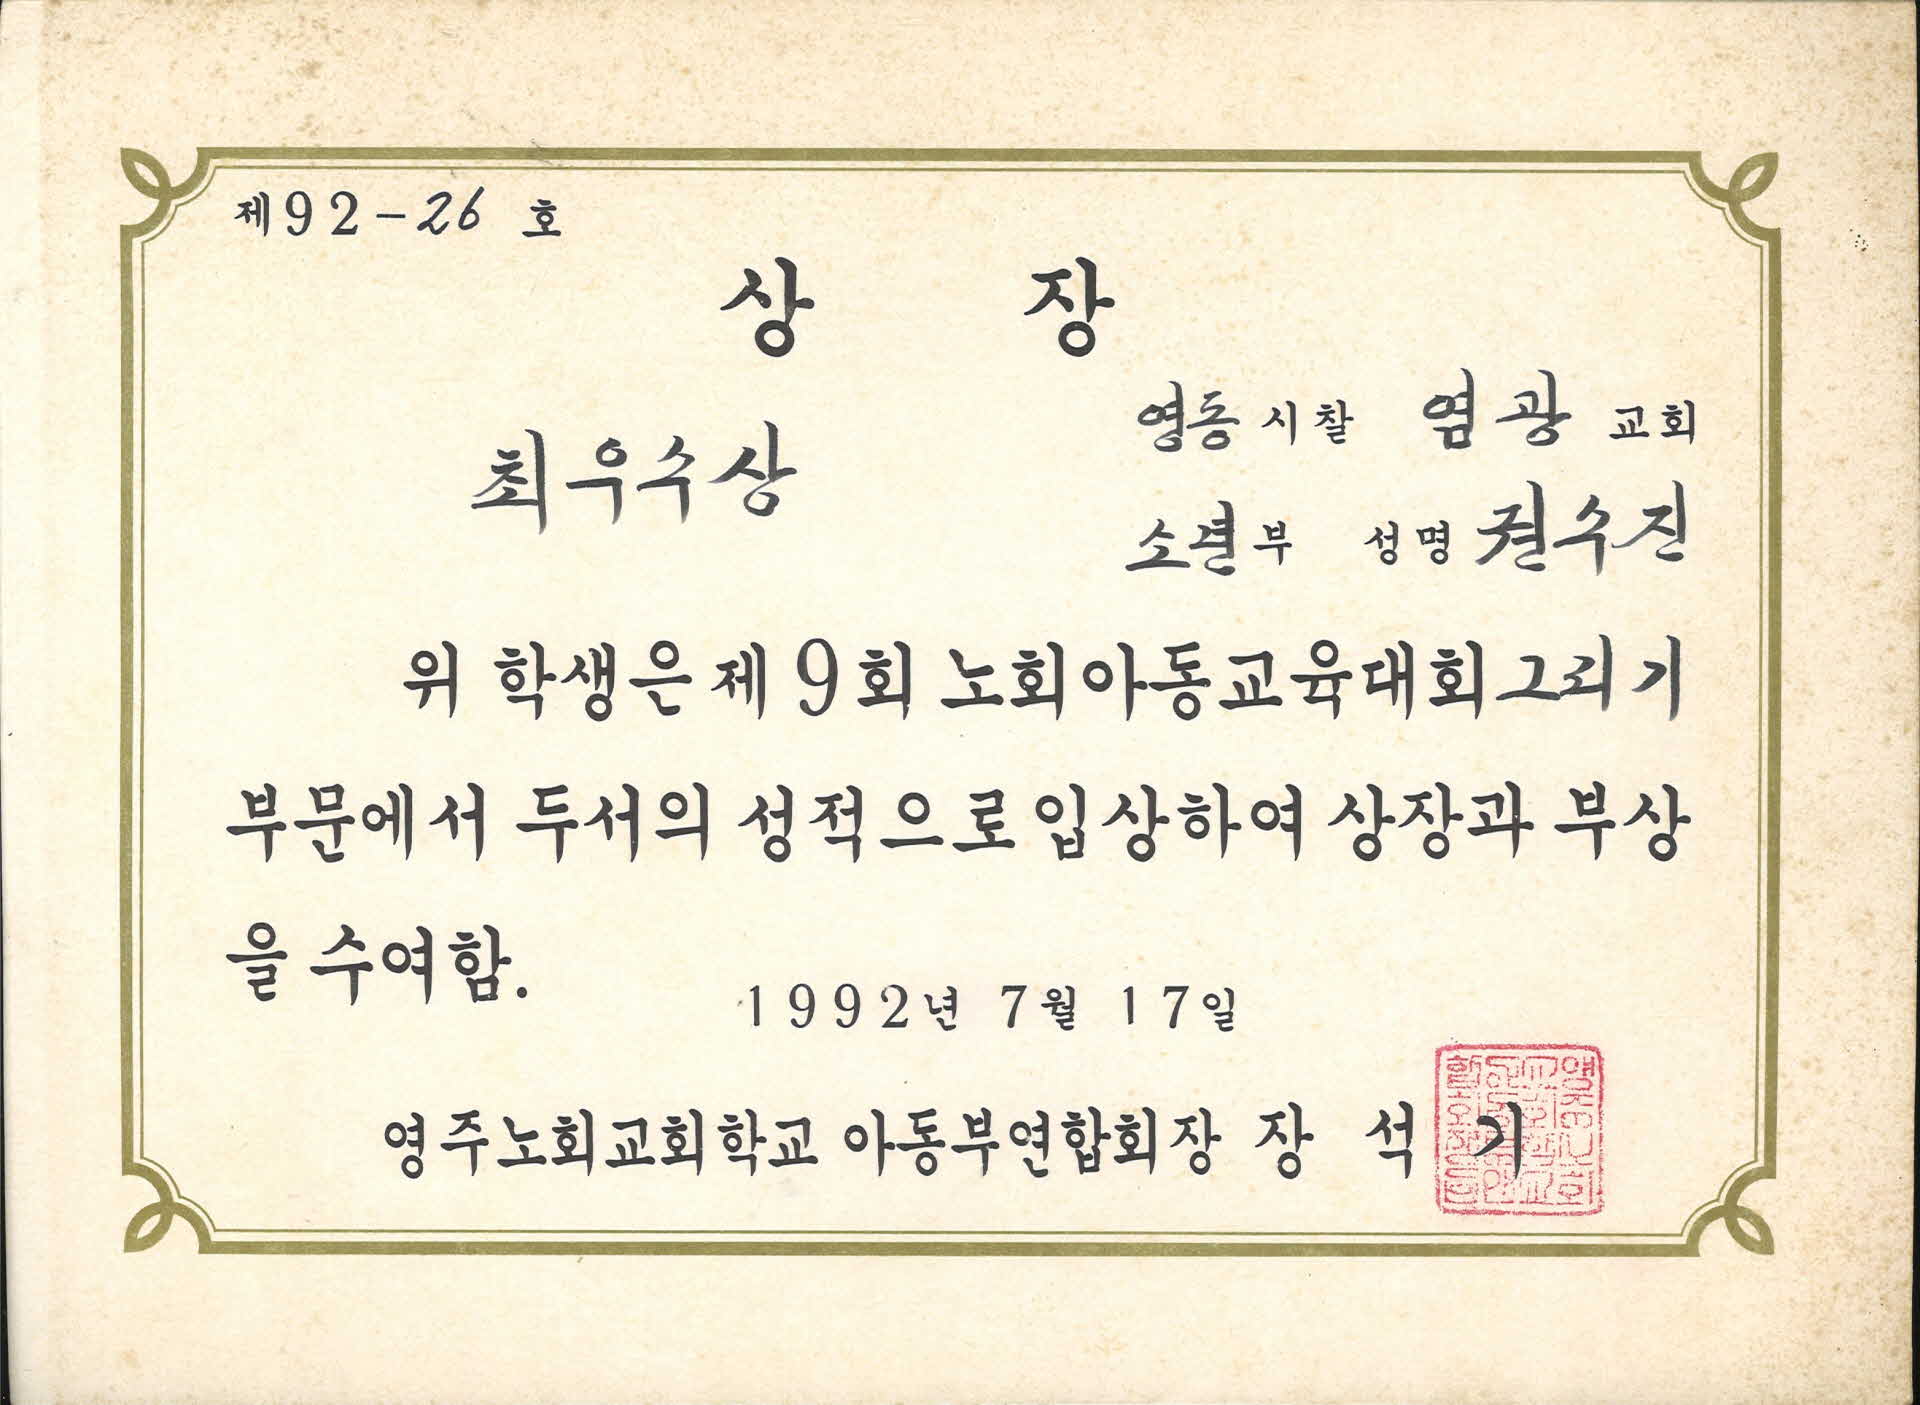 제92-26 호
상 장
영동 시찰 염광 교회
최우수상
소년부 성명 권수진
위 학생은 제 9회 노회아동교육대회 그리기
부문에서 두서의 성적으로 입상하여 상장과 부상
을 수여함.
1992년 7월 17일
영주노회교회학교 아동부연합회장 장 석 기